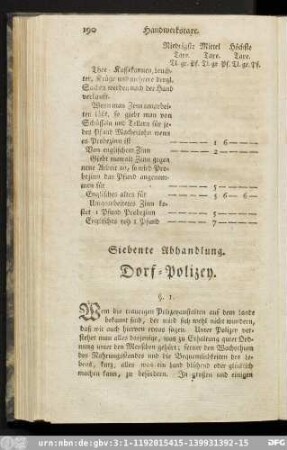 190 Handwerkstaxe.
Niedrigste Mittel Höchste
Taxe. Taxe. Taxe.
Thee- Kaffekannen, leuch-
ter, Krüge und mehrere dergl.
Sachen werden nach der Hand
verkauft.
Wenn man Zinn umarbei-
ten läßt, so giebt man von
Schüsseln und Tellern für je-
des Pfund Macherlohn wenn
es Probezinn ist — 1 6 —
Von englischem Zinn — 2 —
Giebt man alt Zinn gegen
neue Arbeit an, so wird Pro-
bezinn das Pfund angenom-
men für — 5 —
Englisches altes für — 5 6 — 6
Unverarbeitetes Zinn ko-
stet 1 Pfund Probezinn — 5 —
Englisches roh 1 Pfund — 7 —
Siebente Abhandlung.
Dorf-Polizey.
§. 1.
Wem die traurigen Polizeyanstalten auf dem lande
bekannt sind, der wird sichs wohl nicht wundern,
daß wir auch hiervon etwas sagen. Unter Polizey ver-
stehet man alles dasjenige, was zu Erhaltung guter Ord-
nung unter den Menschen gehört; ferner den Wachsthum
des Nahrungsstandes und die Bequemlichkeiten des le-
bens, kurz, alles was ein land blühend oder glücklich
machen kann, zu befördern. In großen und einigen
urn:nbn:de:gbv:3:1-1192015415-139931392-15
DFG